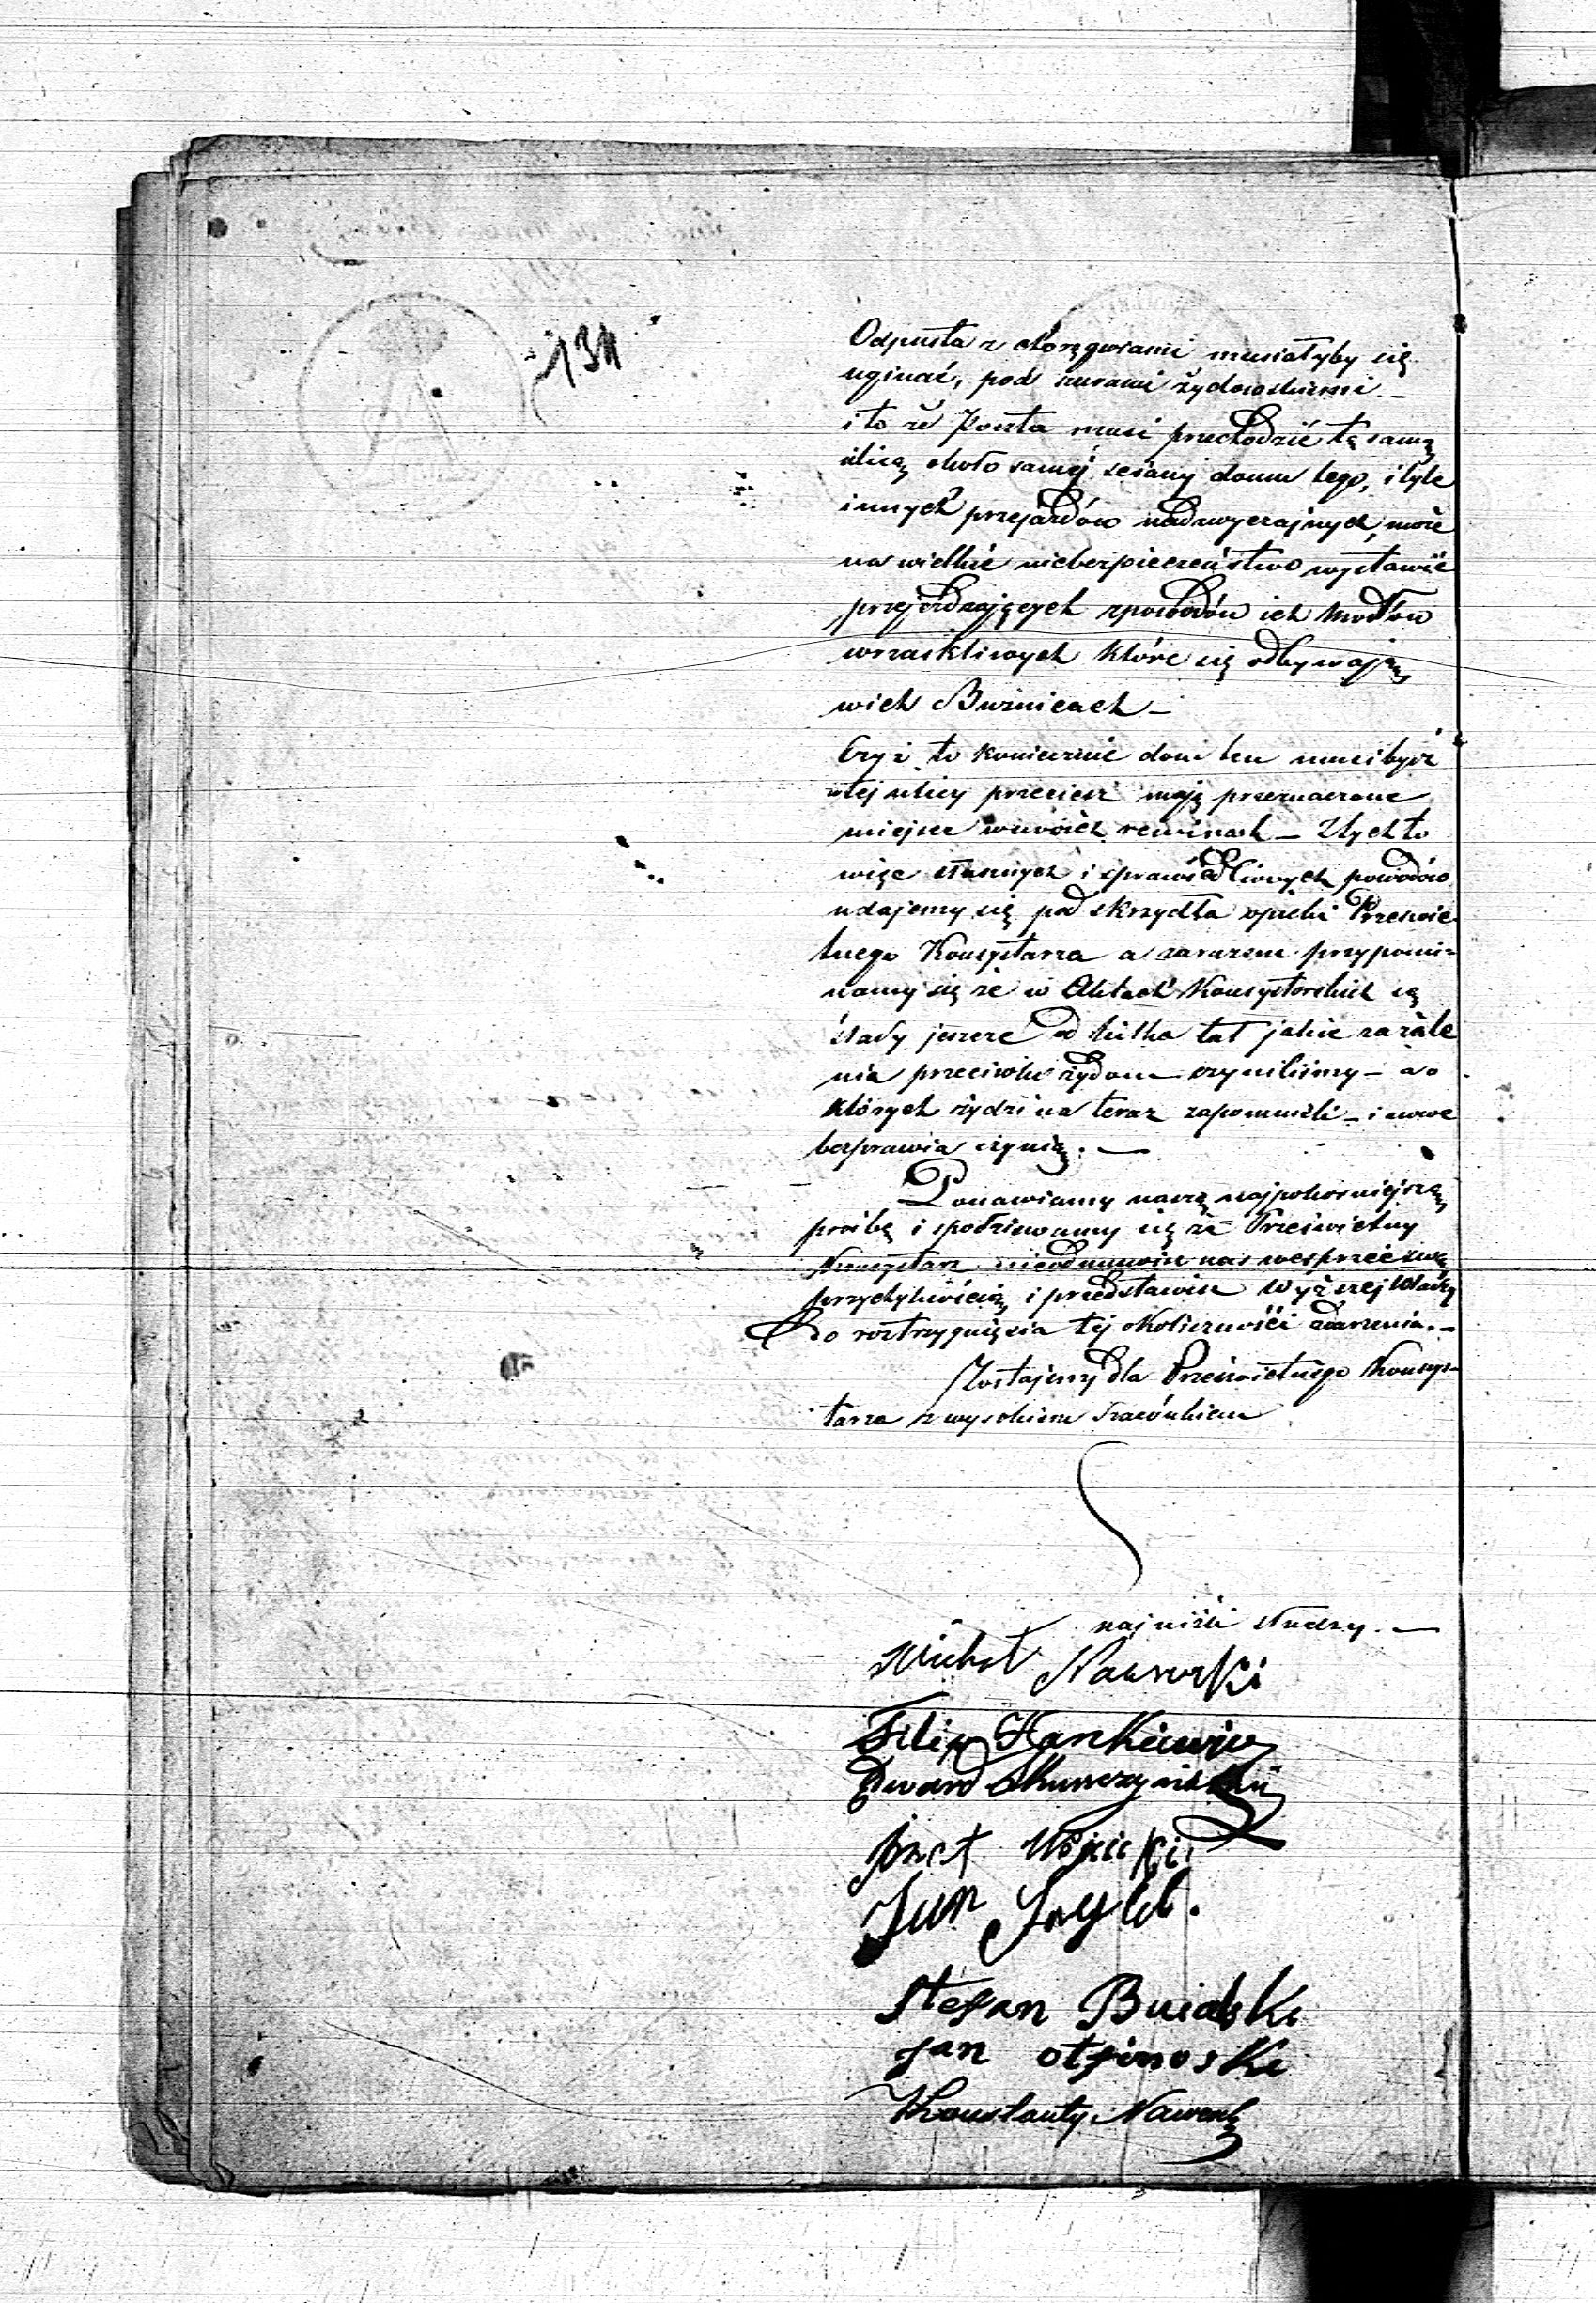 134
Odpusta z chorągwiami musiałyby się
uginać, pod sznrami żydowskiemi. —
i to że Poczta musi przechodzić tą samą
ulicą około samej sciany domu tego, i tyle
innych przejazdów nadzwyczajnych, może
na wielkie niebezpieczeństwo wystawić
przejeżdzających zpowodów ich modłów
wrzaskliwych które się odbywają
wich Bużnicach —
Czyż to koniecznie dom ten musi być
wtej ulicy przeciesz mają przeznaczone
miejsce wswoich rewirach — Ztych to
więc słusznych i sprawiedliwych powodów
udajemy się pod skrzydła opieki Prześwie
tnego Konsystarza a zarazem przypomi-
namy się że w Aktach Konsystorskich są
ślady jeszcze od kilka lat jakie zażale
nia przeciwko żydom czyniliśmy — a o
których żydzi na teraz zapomnieli — i nowe
bezprawia czynią. —
Ponawiamy naszą najpokorniejszą
prośbę i spodziewamy się że Prześwietny
Konsystarz nieodmówi nas wesprzeć swą
przychylnością i przedstawić Wyższej Władzy
do roztrzygnięcia tej okoliczności zdarzenia. —
Zostajemy dla Prześwietnego Konsys-
tarza z wysokiem szacónkiem
najniżśi słudzy. —
Michał Nawrocki
Filip Hankiewicz
Edward Skurczyński
Wójcicki
Jan
Stefan
Jan
Konstanty